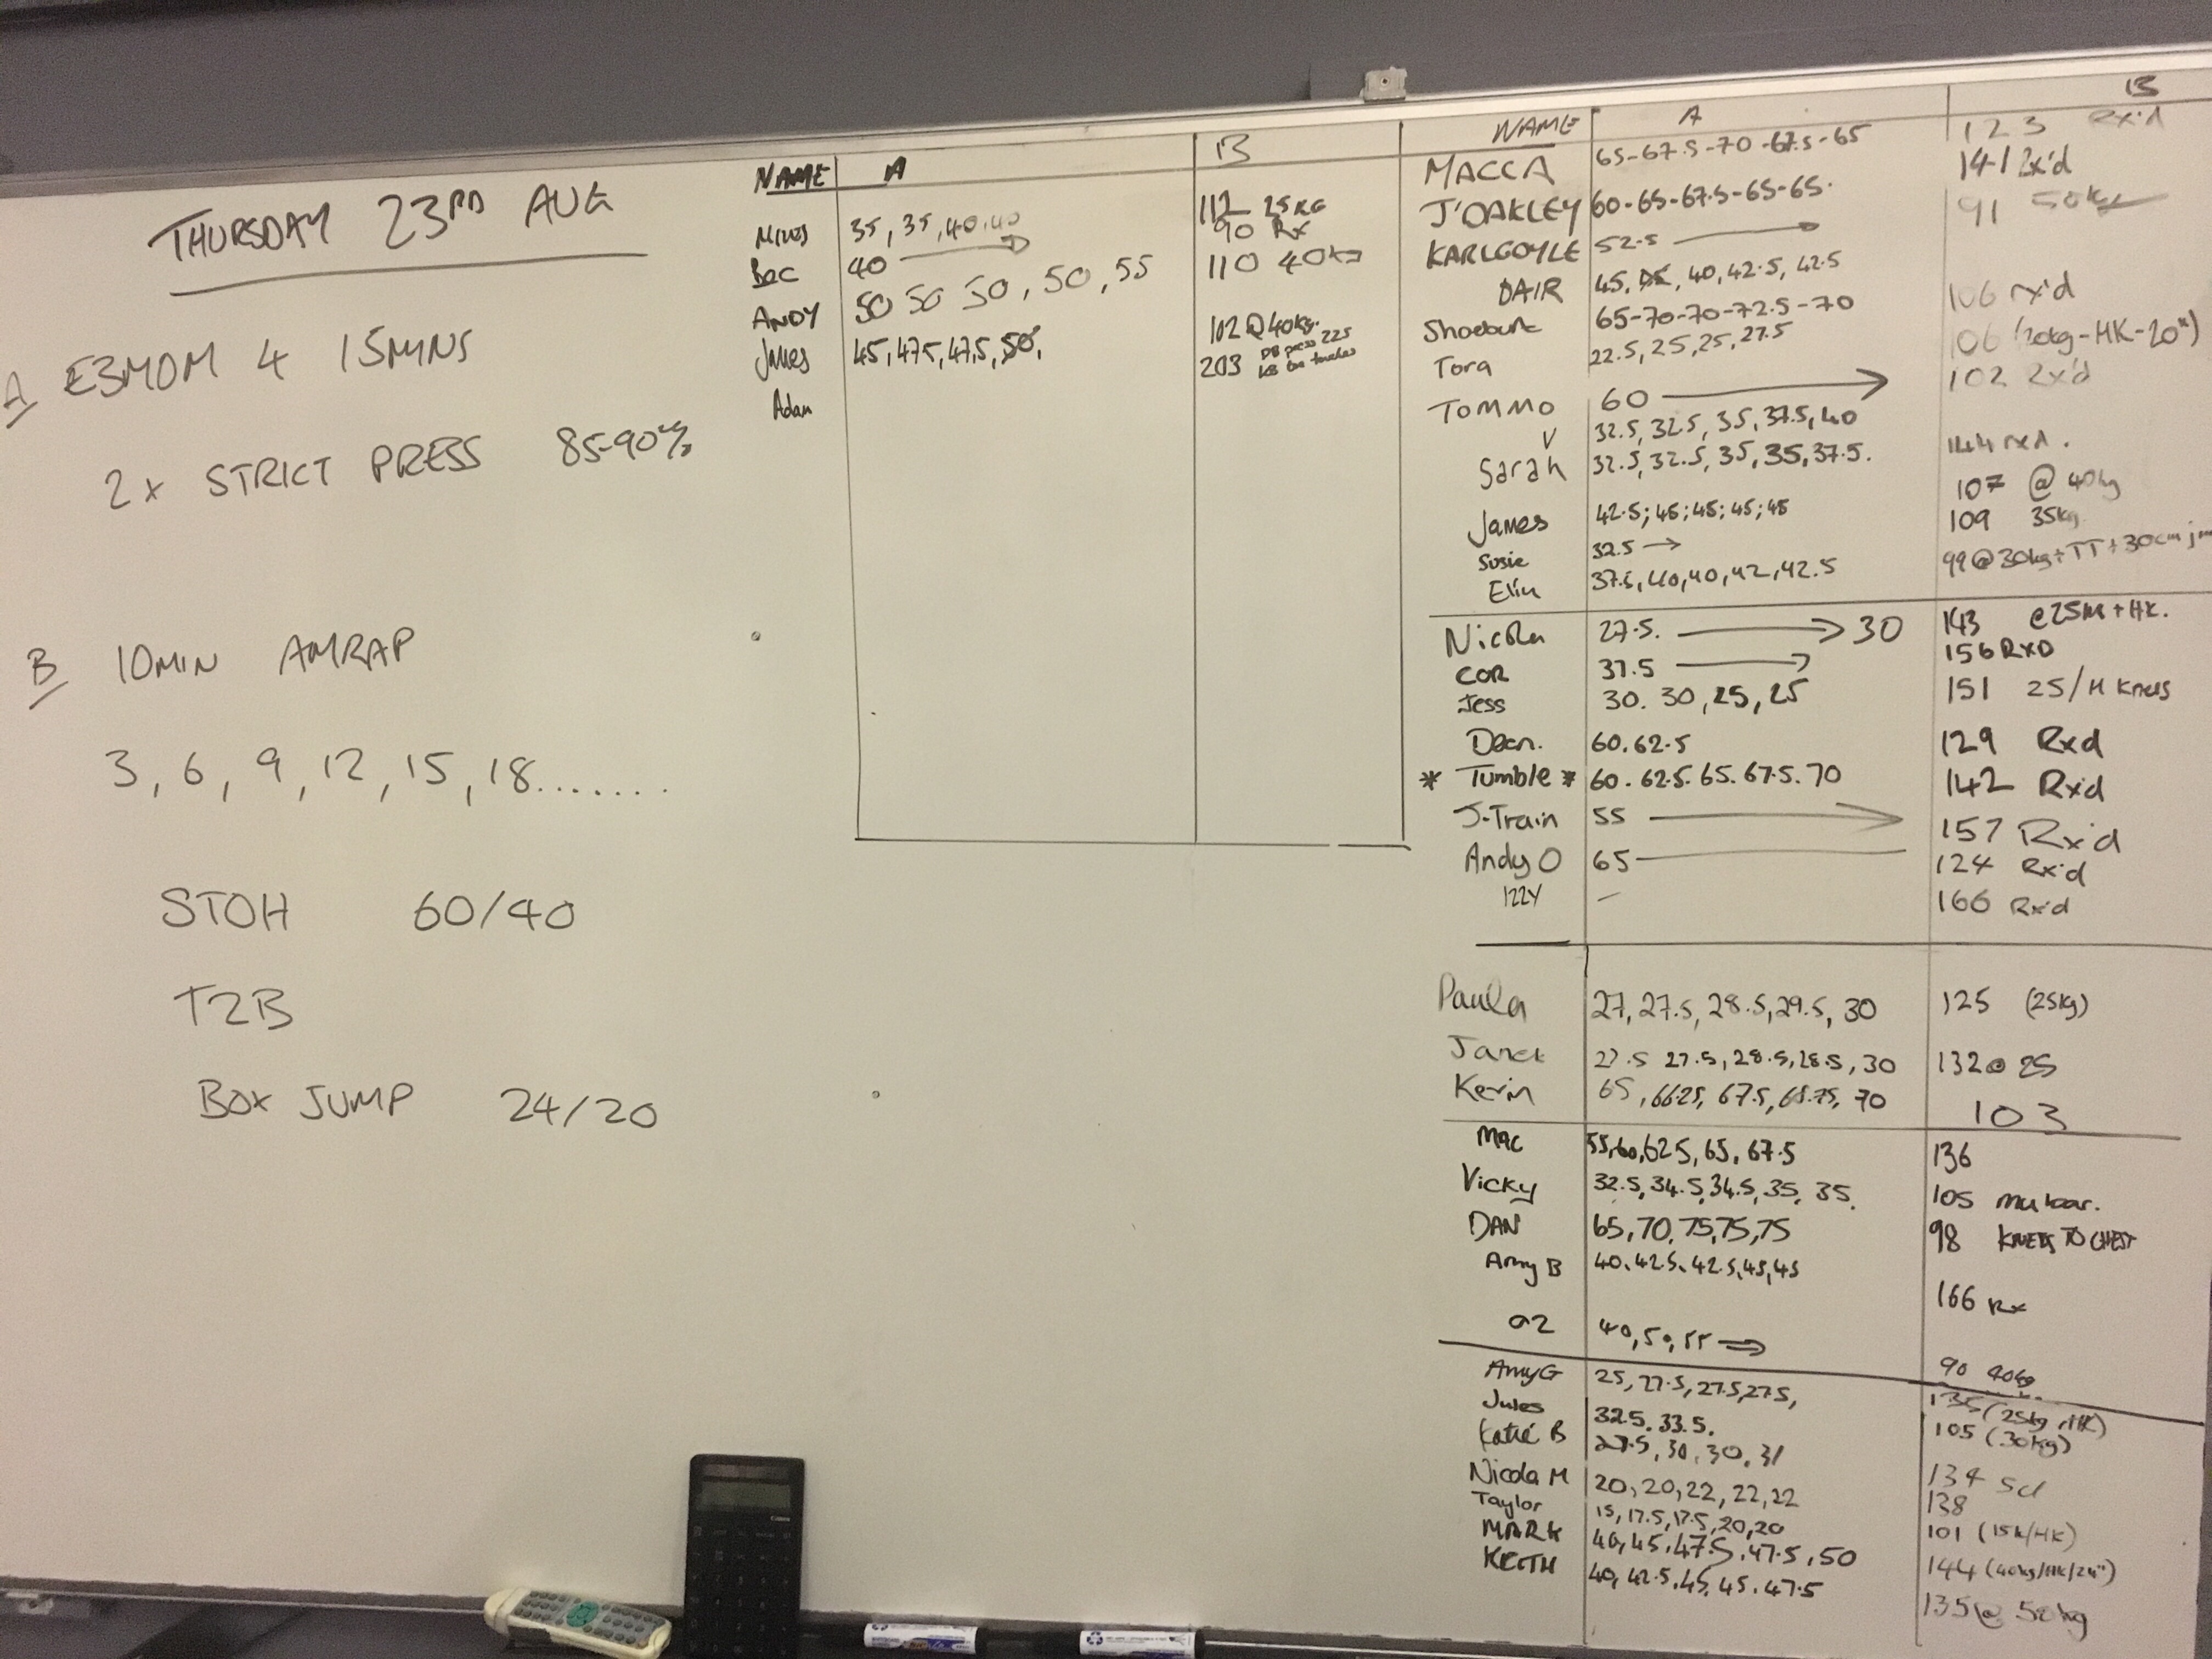 THURSDAY 23RD AUG
A E3MOM 4 15MINS
2x STRICT PRESS 85-90%
B 10MIN AMRAP
3, 6, 9, 12, 15, 18.......
STOH 60/40
T2B
BOX JUMP 24/20
NAME A B
35, 35, 40, 40 112 25KG
BEC 40 90 Rx
ANDY 50 50 50, 50, 55 110 40kg
James 45, 47.5, 47.5, 50, 102 @ 40kg.
Adam 203 DB press 22.5
NAME A B
MACCA 65-67.5-70-67.5-65 123 Rx'd
J'OAKLEY 60-65-67.5-65-65. 141 Rx'd
KARLGOYLE 52.5 91 50kg
DAIR 45, 40, 42.5, 42.5
65-70-70-72.5-70 106 rx'd
Tora 22.5, 25, 25, 27.5 106 (20kg-HK-20")
TOMMO 60 102 Rx'd
V 32.5, 32.5, 35, 37.5, 40
Sarah 32.5, 32.5, 35, 35, 37.5. 144 rxd.
James 42.5; 45; 45; 45; 45 107 @ 40kg
Susie 32.5 109 35kg
Elin 37.5, 40, 40, 42, 42.5 99 @ 30kg + TT + 30cm
Nicola 27.5. 30 143 @25 + HK.
COR 37.5 156 RXD
Jess 30. 30, 25, 25 151 25/H Knees
Dean. 60. 62.5 129 Rxd
* Tumble * 60. 62.5. 65. 67.5. 70 142 Rxd
J-Train 55 157 Rx'd
Andy O 65 124 Rx'd
IZZY – 166 Rx'd
Paula 27, 27.5, 28.5, 29.5, 30 125 (25kg)
Janet 27.5 27.5, 28.5, 28.5, 30 132 @ 25
Kevin 65, 66.25, 67.5, 68.75, 70 103
Mac 55, 60, 62.5, 65, 67.5 136
Vicky 32.5, 34.5, 34.5, 35, 35. 105
DAN 65, 70, 75, 75, 75 98 KNEES TO CHEST
Amy B 40. 42.5. 42.5, 45, 45 166 Rx
OZ 40, 50, 55 90 40kg
Amy G 25, 27.5, 27.5, 27.5, 135 (25kg, HK)
Jules 32.5. 33.5. 105 (30kg)
Katie B 27.5, 30, 30, 31 134 Scl
Nicola M 20, 20, 22, 22, 22 138
Taylor 15, 17.5, 17.5, 20, 20 101 (15k/HK)
MARK 40, 45, 47.5, 47.5, 50 144 (40kg/HK/24")
KEITH 40, 42.5, 45, 45. 47.5 135 @ 50kg
Canon